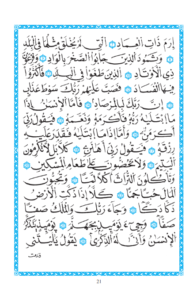 إِرَمَ ذَاتِ ٱلْعِمَادِ ۝ ٱلَّتِى لَمْ يُخْلَقْ مِثْلُهَا فِى ٱلْبِلَٰدِ
۝ وَثَمُودَ ٱلَّذِينَ جَابُوا۟ ٱلصَّخْرَ بِٱلْوَادِ ۝ وَفِرْعَوْنَ
ذِى ٱلْأَوْتَادِ ۝ ٱلَّذِينَ طَغَوْا۟ فِى ٱلْبِلَٰدِ ۝ فَأَكْثَرُوا۟
فِيهَا ٱلْفَسَادَ ۝ فَصَبَّ عَلَيْهِمْ رَبُّكَ سَوْطَ عَذَابٍ
۝ إِنَّ رَبَّكَ لَبِٱلْمِرْصَادِ ۝ فَأَمَّا ٱلْإِنسَٰنُ إِذَا
مَا ٱبْتَلَىٰهُ رَبُّهُۥ فَأَكْرَمَهُۥ وَنَعَّمَهُۥ ۝ فَيَقُولُ رَبِّىٓ
أَكْرَمَنِ ۝ وَأَمَّآ إِذَا مَا ٱبْتَلَىٰهُ فَقَدَرَ عَلَيْهِ
رِزْقَهُۥ ۝ فَيَقُولُ رَبِّىٓ أَهَٰنَنِ ۝ كَلَّا بَل لَّا تُكْرِمُونَ
ٱلْيَتِيمَ ۝ وَلَا تَحَٰٓضُّونَ عَلَىٰ طَعَامِ ٱلْمِسْكِينِ ۝
وَتَأْكُلُونَ ٱلتُّرَاثَ أَكْلًا لَّمًّا ۝ وَتُحِبُّونَ
ٱلْمَالَ حُبًّا جَمًّا ۝ كَلَّآ إِذَا دُكَّتِ ٱلْأَرْضُ
دَكًّا دَكًّا ۝ وَجَآءَ رَبُّكَ وَٱلْمَلَكُ صَفًّا
صَفًّا ۝ وَجِا۟ىٓءَ يَوْمَئِذٍۭ بِجَهَنَّمَ ۝ يَوْمَئِذٍ يَتَذَكَّرُ
ٱلْإِنسَٰنُ وَأَنَّىٰ لَهُ ٱلذِّكْرَىٰ ۝ يَقُولُ يَٰلَيْتَنِى
قَدَّمْتُ